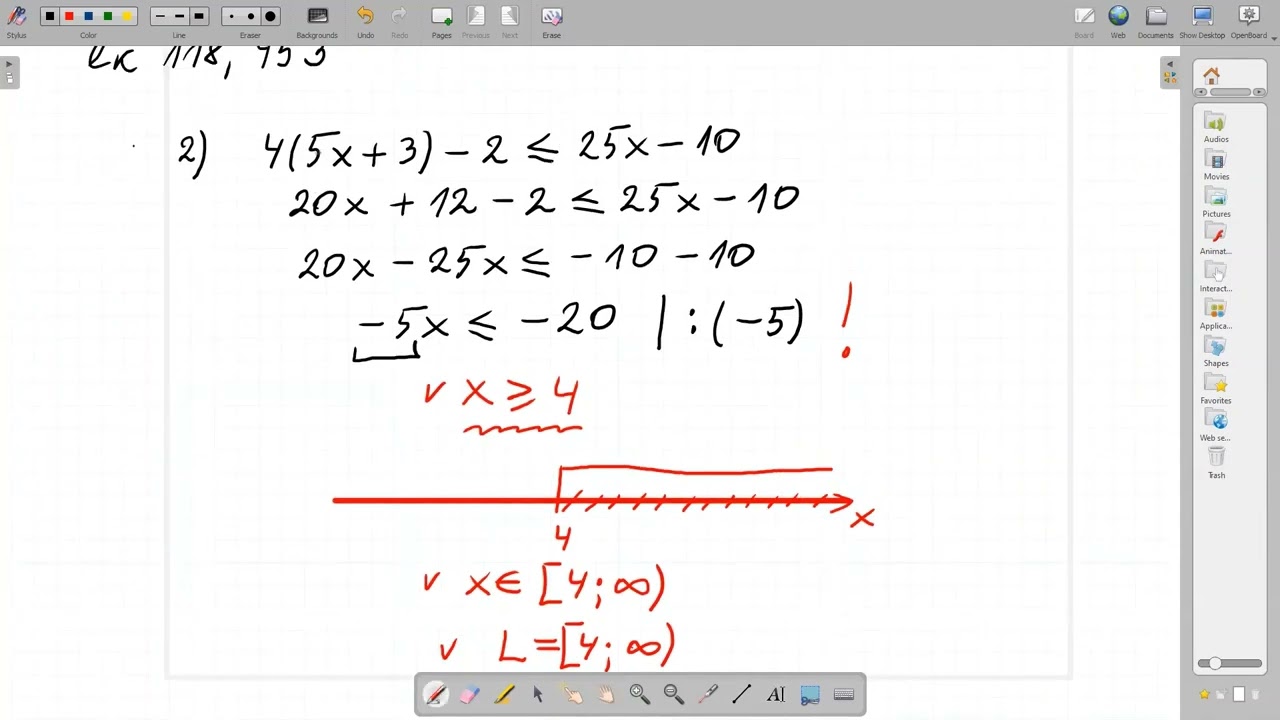 Stylus Color Line Eraser Backgrounds Undo Redo Pages Previous Next Erase Board Web Documents Show Desktop OpenBoard
118,
2) 4(5x+3) - 2 ≤ 25x - 10
20x + 12 - 2 ≤ 25x - 10
20x - 25x ≤ -10 - 10
-5x ≤ -20 | : (-5) !
v x ≥ 4
x
4
v x ∈ [4; ∞)
v L = [4; ∞)
Audios
Movies
Pictures
Animat...
Interact...
Applica...
Shapes
Favorites
Web se...
Trash
AI